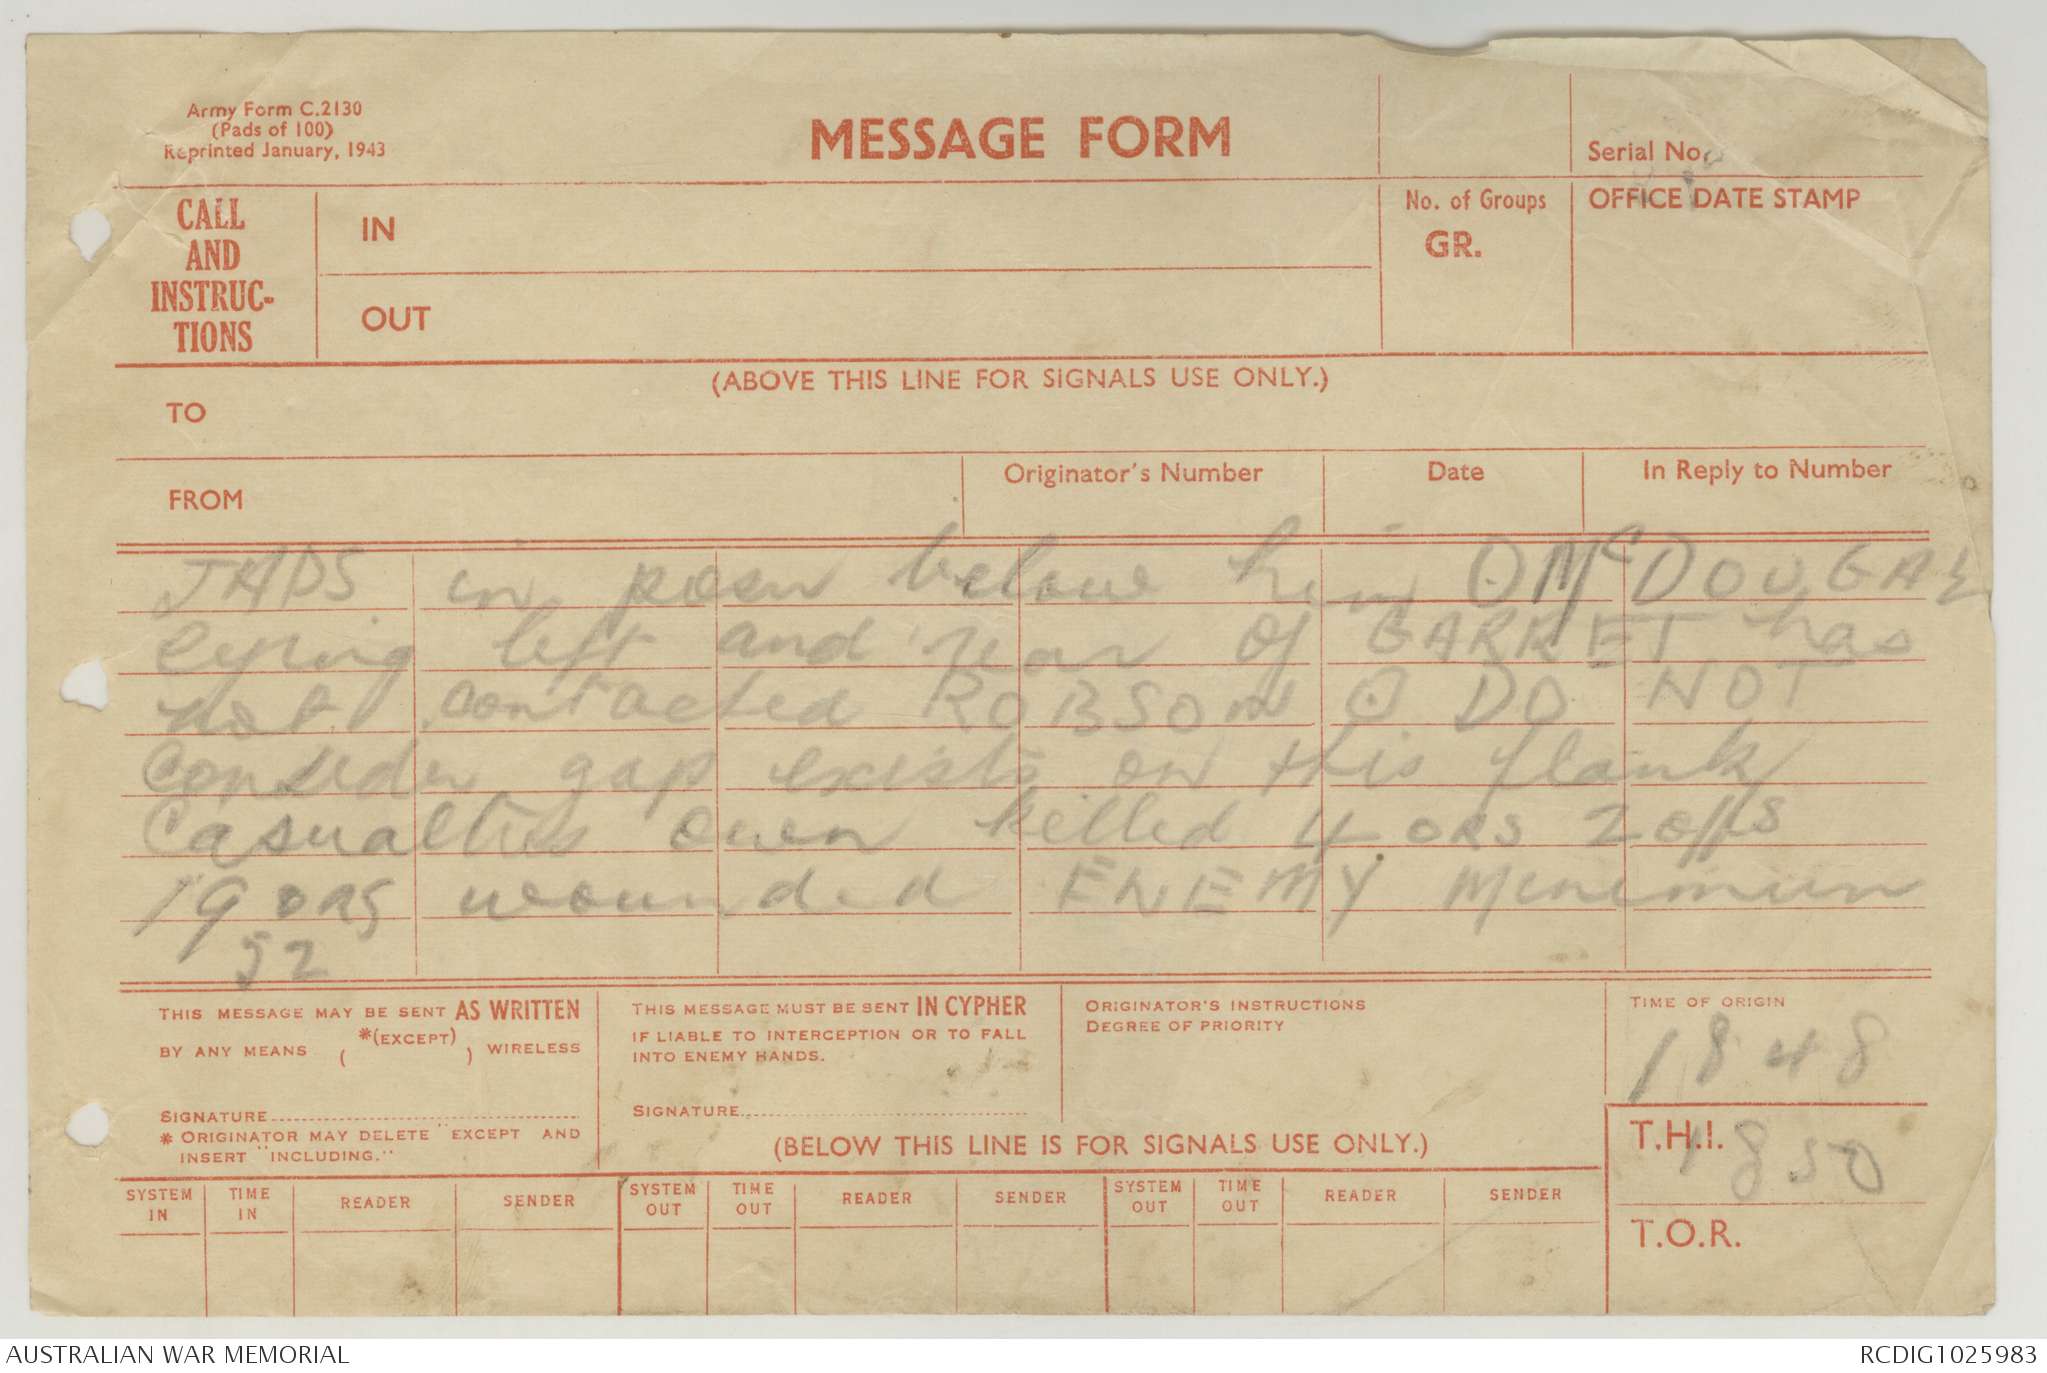 Army Form C.2130
(Pads of 100)
Reprinted January, 1943
MESSAGE FORM
Serial No.
CALL
AND
INSTRUC-
TIONS
IN
OUT
No. of Groups
GR.
OFFICE DATE STAMP
(ABOVE THIS LINE FOR SIGNALS USE ONLY.)
TO
FROM
Originator's Number
Date
In Reply to Number
JAPS in posn below him ⊙ McDOUGAL
lying left and rear of GARRET has
not contacted ROBSON ⊙ DO NOT
consider gap exists on this flank
Casualties own killed 4 ORS 2 offs
19 ORS wounded ENEMY Minimum
52
THIS MESSAGE MAY BE SENT AS WRITTEN
BY ANY MEANS *(EXCEPT) ( ) WIRELESS
SIGNATURE
* ORIGINATOR MAY DELETE "EXCEPT AND
INSERT "INCLUDING."
THIS MESSAGE MUST BE SENT IN CYPHER
IF LIABLE TO INTERCEPTION OR TO FALL
INTO ENEMY HANDS.
SIGNATURE
ORIGINATOR'S INSTRUCTIONS
DEGREE OF PRIORITY
TIME OF ORIGIN
1848
(BELOW THIS LINE IS FOR SIGNALS USE ONLY.)
T.H.I. 1850
T.O.R.
SYSTEM IN TIME IN READER SENDER SYSTEM OUT TIME OUT READER SENDER SYSTEM OUT TIME OUT READER SENDER
AUSTRALIAN WAR MEMORIAL
RCDIG1025983